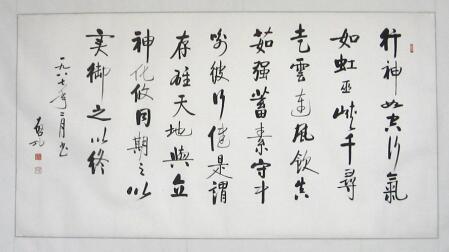 行神如空行氣
如虹巫峽千尋
走雲連風飲真
茹强蓄素守中
喻彼行健是謂
存雄天地與立
神化攸同期之以
實御之以終
一九八七年二月書
啓功